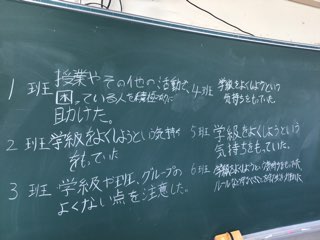 1班 授業やその他の活動で、
困っている人を積極的に
助けた。
2班 学級をよくしようという気持ち
をもっていた
3班 学級や班、グループの
よくない点を注意した。
4班 学級をよくしようという
気持ちをもっていた。
5班 学級をよくしようという
気持ちをもっていた。
6班 学級をよくしようという気持ちをもち、
ルール